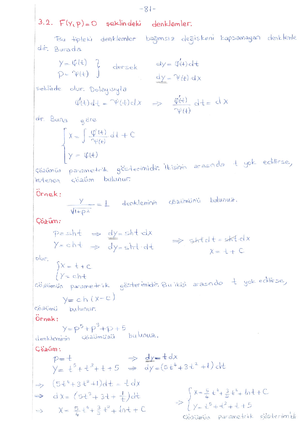 -81-
3.2. F(y,p)=0 şeklindeki denklemler.
Bu tipteki denklemler bağımsız değişkeni kapsamayan denklemlerdir. Burada
y = φ(t) } dersek dy = φ'(t)dt
p = Ψ(t) } dy = Ψ(t)dx
şeklinde olur. Dolayısıyla
φ'(t)dt = Ψ(t)dx ⇒ φ'(t)/Ψ(t) dt = dx
Buna göre
{ x = ∫ φ'(t)/Ψ(t) dt + C
{ y = φ(t)
çözümün parametrik gösterimidir. İkisinin arasında t yok edilirse,
çözüm bulunur.
Örnek:
y/√(1+p²) = 1 denkleminin çözümünü bulunuz.
Çözüm:
p = sht ⇒ dy = sht dx
y = cht ⇒ dy = sht dt ⇒ sht dt = sht dx
x = t + C
olur.
{ x = t + C
{ y = cht
çözümün parametrik gösterimidir. Bu ikisi arasında t yok edilirse,
y = ch(x-c)
çözümü bulunur.
Örnek:
y = p⁵+p³+p+5
denkleminin çözümünü bulunuz.
Çözüm:
p = t ⇒ dy = t dx
y = t⁵+t³+t+5 ⇒ dy = (5t⁴+3t²+1)dt
⇒ (5t⁴+3t²+1)dt = t dx
⇒ dx = (5t³+3t+1/t)dt ⇒ { x = 5/4 t⁴ + 3/2 t² + lnt + C
⇒ x = 5/4 t⁴ + 3/2 t² + lnt + C { y = t⁵+t³+t+5
Çözümün parametrik gösterimidir